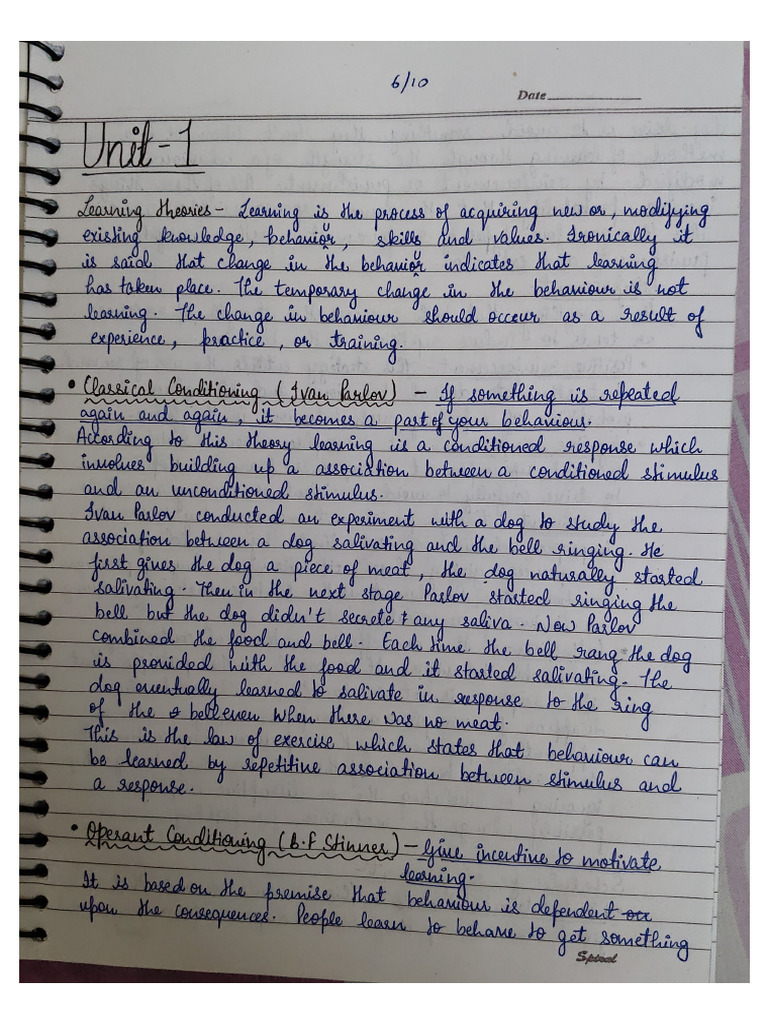 6/10
Date
Unit-1
Learning theories - Learning is the process of acquiring new or, modifying
existing knowledge, behaviour, skills and values. Ironically it
is said that change in the behaviour indicates that learning
has taken place. The temporary change in the behaviour is not
learning. The change in behaviour should occur as a result of
experience, practice, or training.
• Classical Conditioning (Ivan Parlov) - If something is repeated
again and again, it becomes a part of your behaviour.
According to this theory learning is a conditioned response which
involves building up a association between a conditioned stimulus
and an unconditioned stimulus.
Ivan Parlov conducted an experiment with a dog to study the
association between a dog salivating and the bell ringing. He
first gives the dog a piece of meat, the dog naturally started
salivating. Then in the next stage Parlov started ringing the
bell but the dog didn't secrete any saliva. Now Parlov
combined the food and bell. Each time the bell rang the dog
is provided with the food and it started salivating. The
dog eventually learned to salivate in response to the ring
of the bell even when there was no meat.
This is the law of exercise which states that behaviour can
be learned by repetitive association between stimulus and
a response.
• Operant Conditioning (B.F Stinner) - Give incentive to motivate
learning.
It is based on the premise that behaviour is dependent
upon the consequences. People learn to behave to get something
Spiral